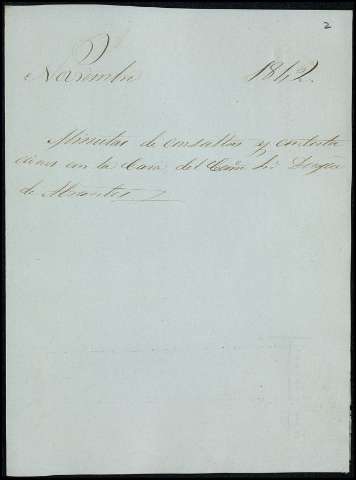 2
Noviembre 1842.
Minutas de consultas y contesta
ciones con la Casa del Exmo Sr. Duque
de Abrantes